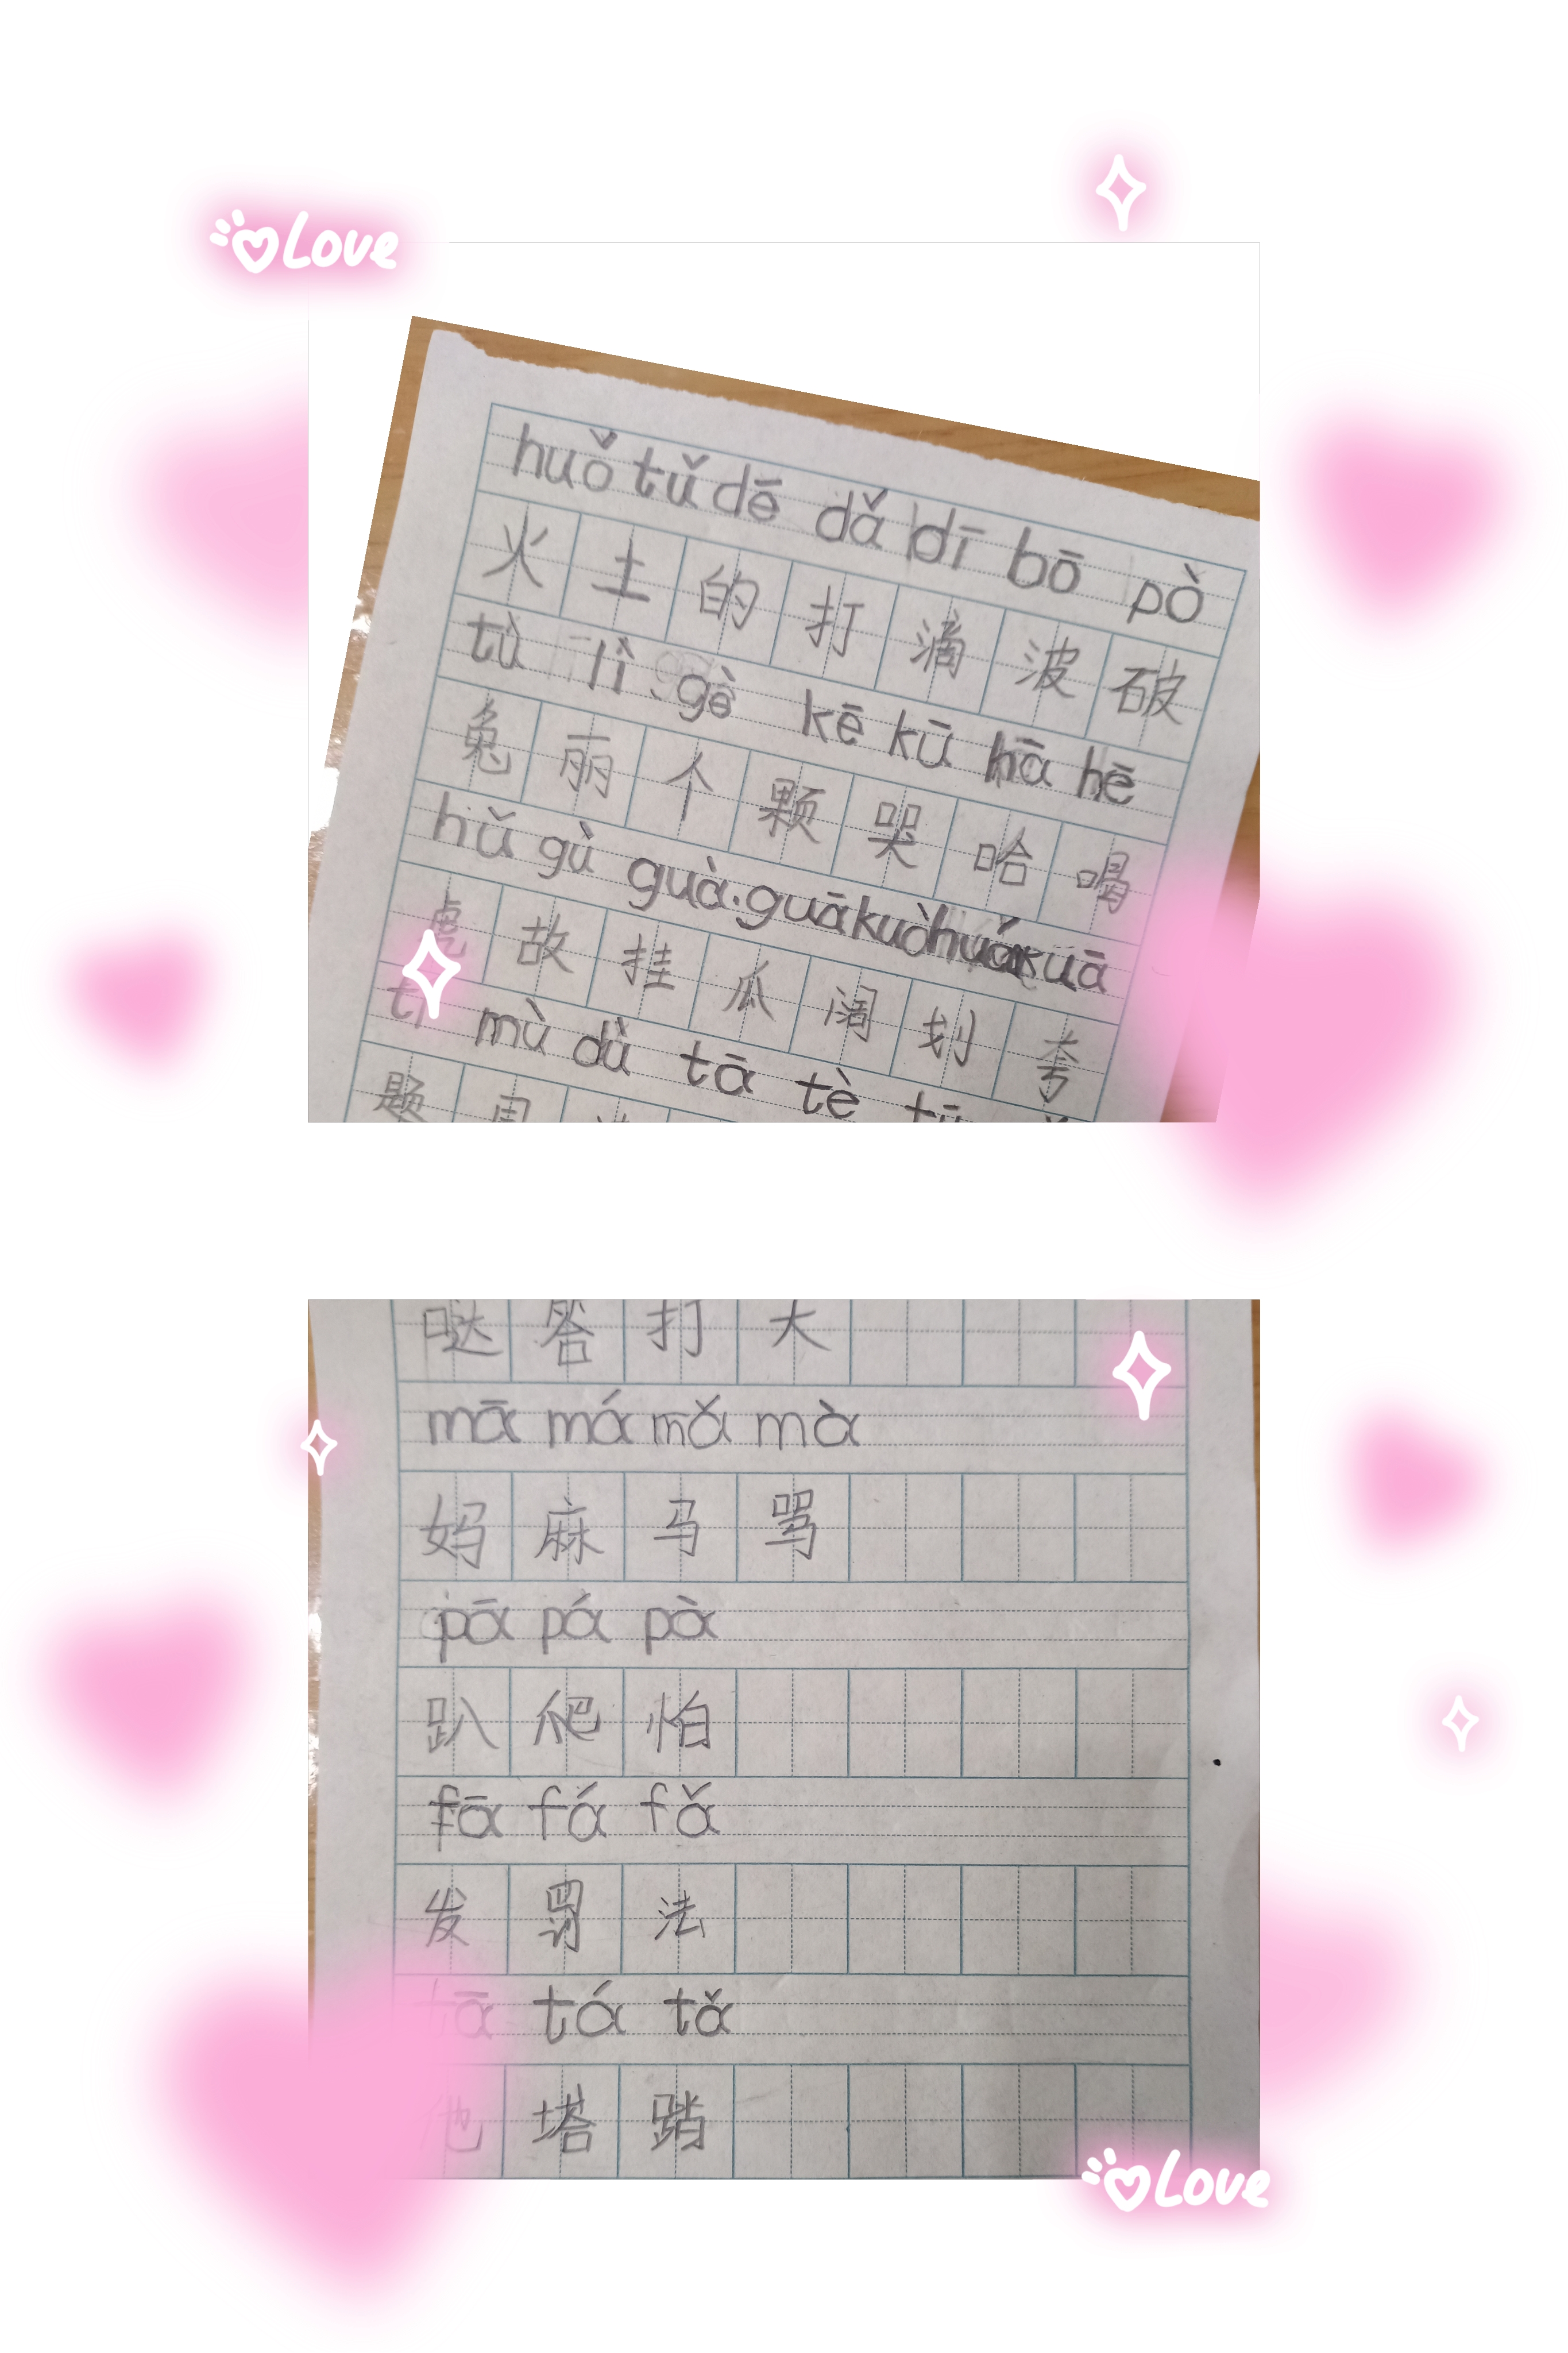 Love
huǒ tǔ dē dǎ dī bō pò
火 土 的 打 滴 波 破
tù lì gè kē kū hā hē
兔 丽 个 颗 哭 哈 喝
hǔ gù guà guā kuò huá kuā
虎 故 挂 瓜 阔 划 夸
mù dù tā tè
题
哒 答 打 大
mā má mǎ mà
妈 麻 马 骂
pā pá pà
趴 爬 怕
fā fá fǎ
发 罚 法
tā tá tǎ
他 塔
Love